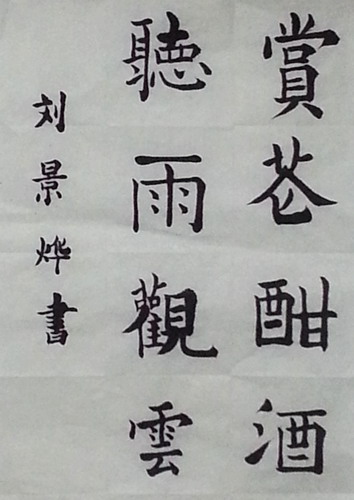 賞花酣酒
聽雨觀雲
刘景烨書